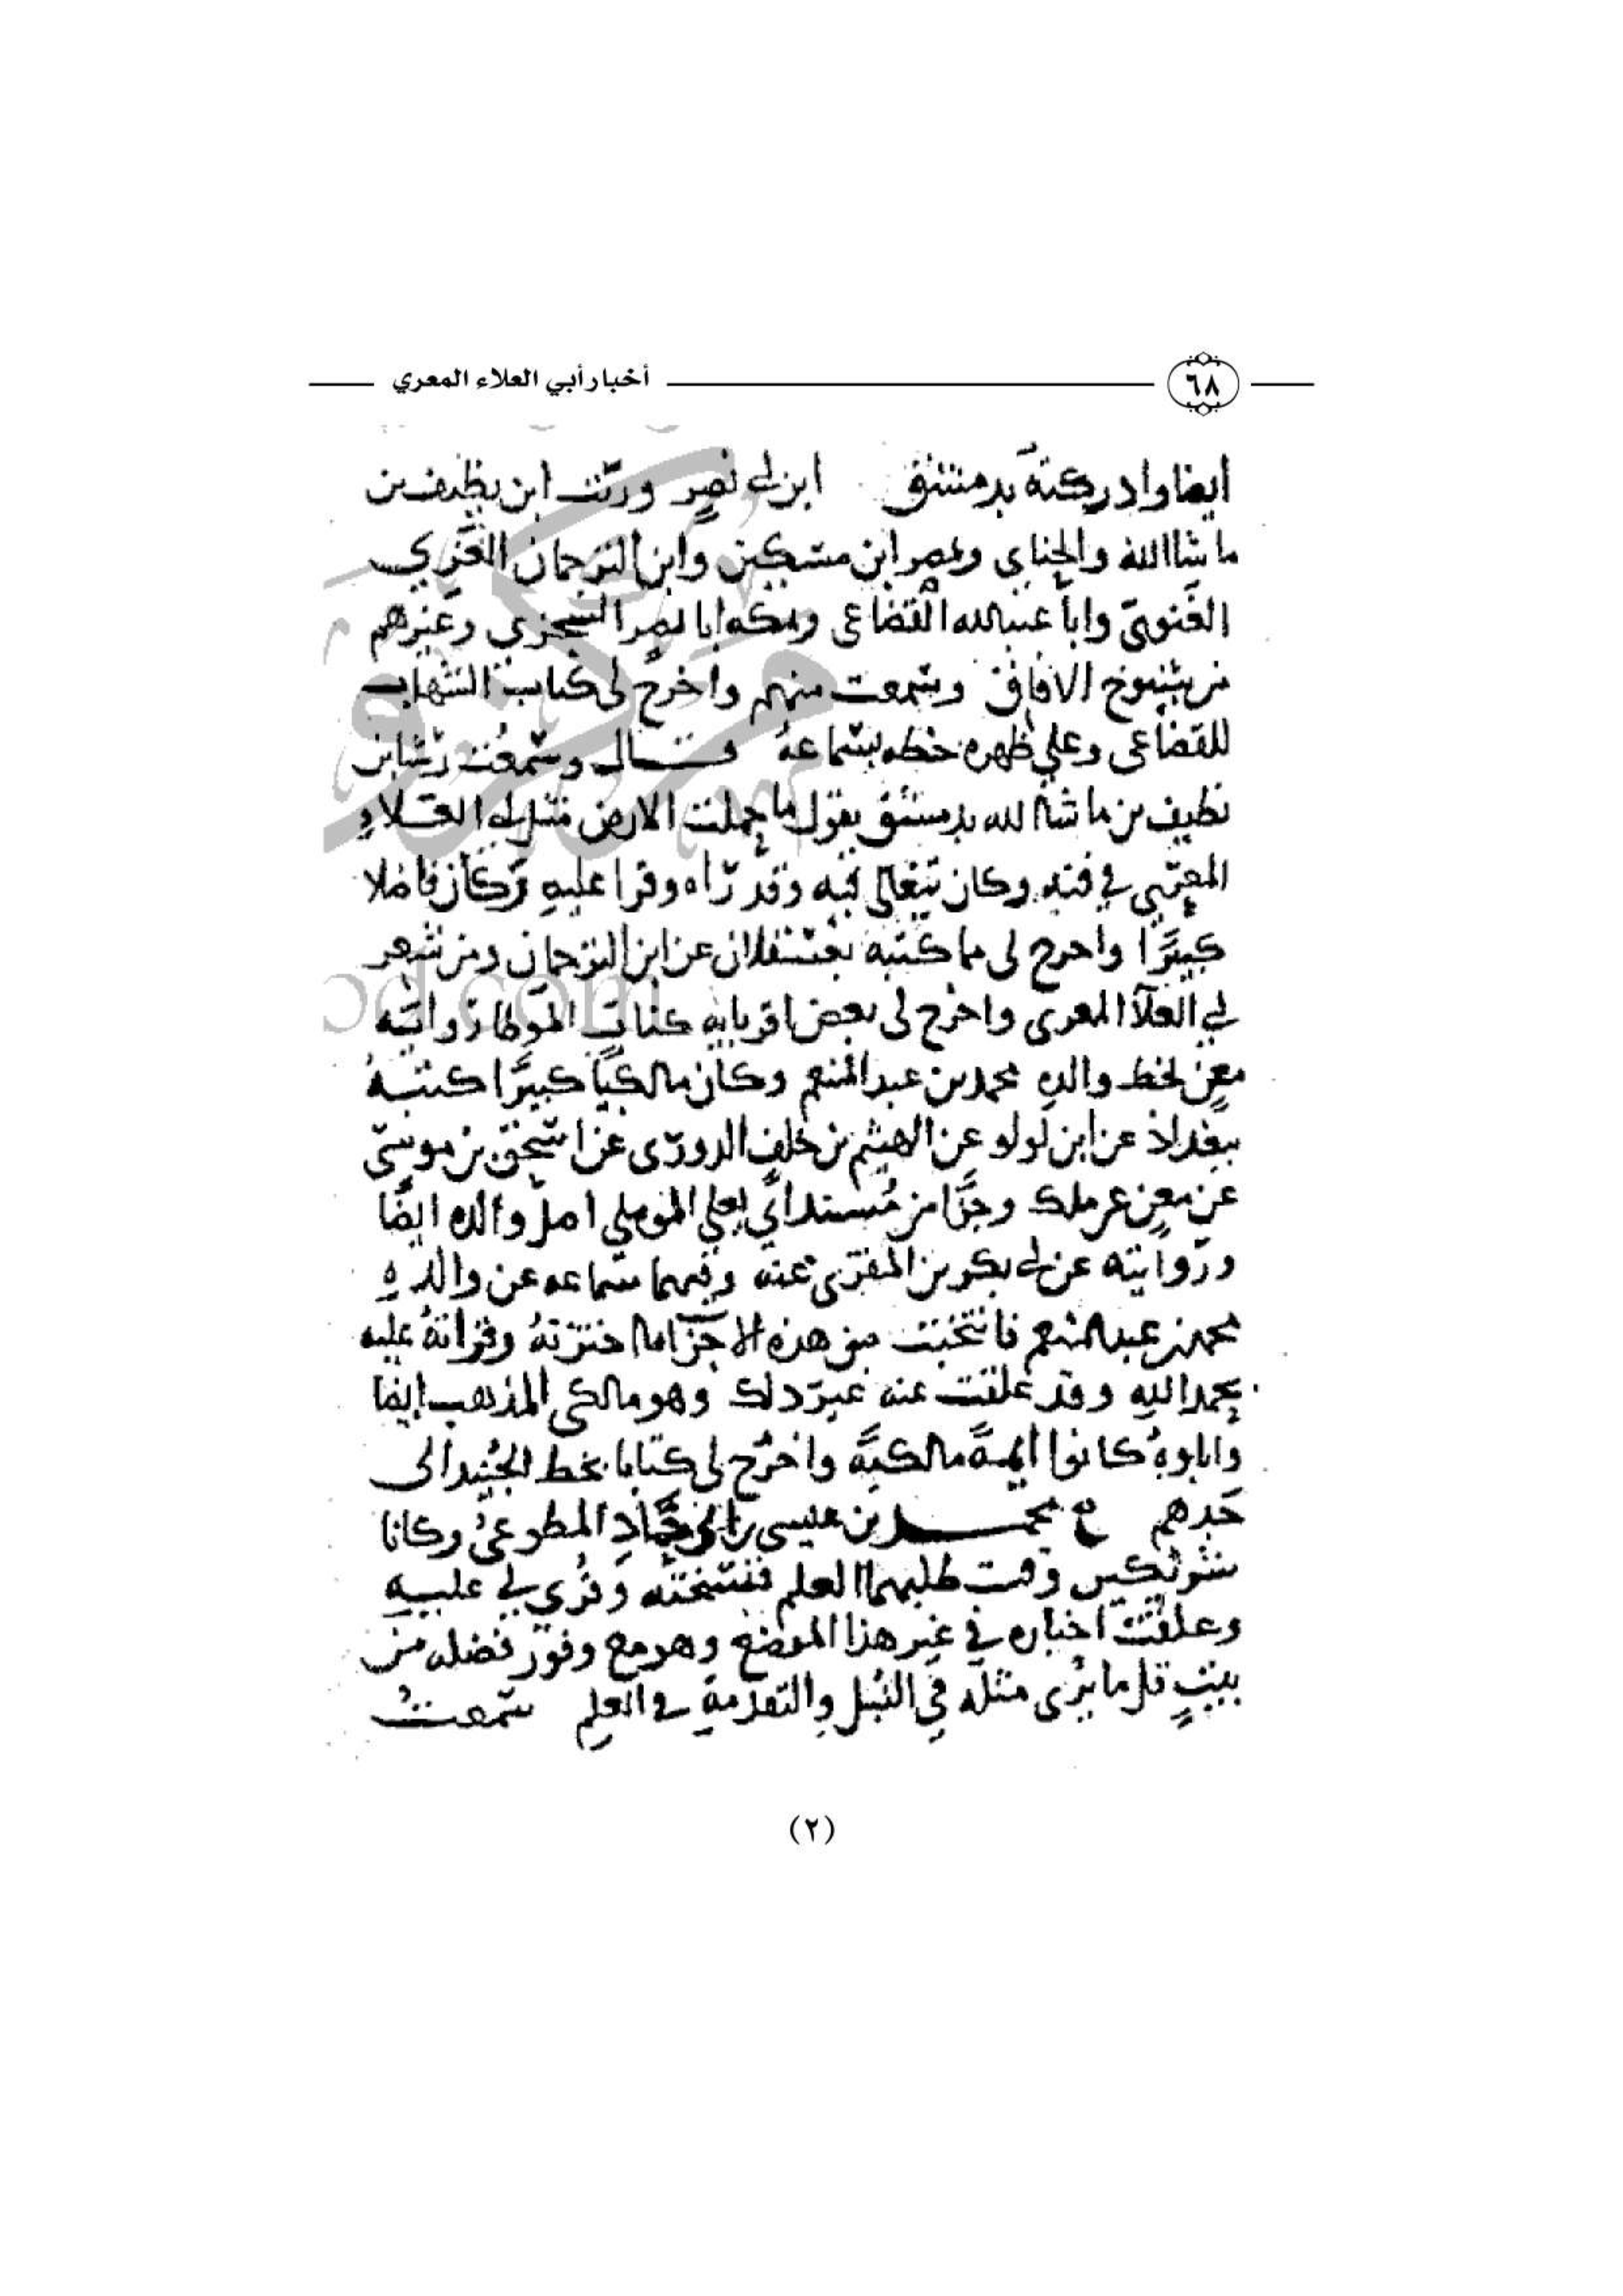 ٦٨ أخبار أبي العلاء المعري
ايضا وادركته بدمشق ابن ابي نصر ورشا ابن نظيف بن
ما شاالله والجنابي وبمصر ابن مسكين وابن الترجمان الغزي
وابا عبدالله القضاعي وبمكه ابا نصر السجزي وغيرهم
من شيوخ الافاق وسمعت منهم واخرج لي كتاب الشهاب
للقضاعي وعلي ظهره خطه بسماعه قال وسمعت رشا بن
نظيف بن ما شاالله بدمشق يقول ما حملت الارض مثل ابي العلاء
المعري في فنه وكان يتغالى فيه وقد رآه وقرا عليه وكان فاضلا
كبيرا واخرج لي ما كتبه بعسقلان عن ابن الترجمان ومن شعر
ابي العلآ المعري واخرج لي بعض اقربايه كتاب الموطا روايه
معن بخط والده محمد بن عبد المنعم وكان مالكيا كبيرا كتبه
ببغداذ عن ابن لولو عن الهيثم بن خلف الدوري عن اسحق بن موسى
عن معن عن ملك وجزا من مسند ابي يعلي الموصلي اصل والده ايضا
وروايته عن ابي بكر بن المقرى عنه وفيهما سماعه عن والده
محمد بن عبد المنعم فانتخبت من هذه الاجزا ما اخترته وقراته عليه
بحمد الله وقد علقت عنه غير ذلك وهو مالكي المذهب ايضا
واباوه كانوا ايمة مالكية واخرج لي كتابا بخط الجنيد الى
جدهم مع محمد بن عيسى بن ابي حماد المطوعي وكانا
شريكين وقت طلبهما العلم فنسخته وقرى لي عليه
وعلقت اخباره في غير هذا الموضع وهو مع وفور فضله من
بيت قل ما يرى مثله في النبل والتقدمة في العلم سمعت
(٢)